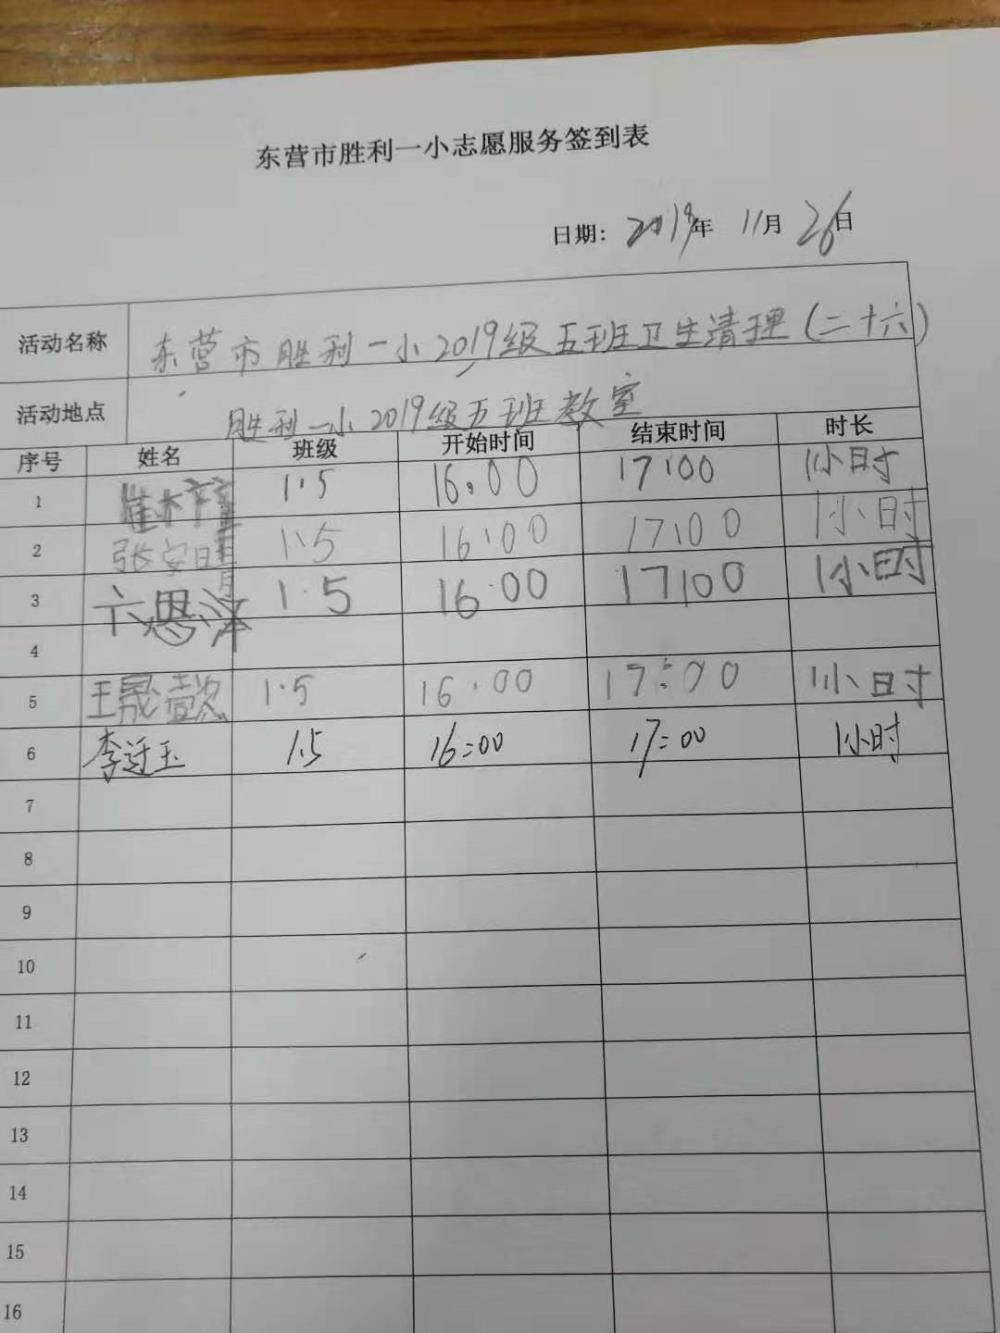 东营市胜利一小志愿服务签到表
日期: 2019年 11月 26日
活动名称 东营市胜利一小2019级五班卫生清理(二十六)
活动地点 胜利一小2019级五班教室
序号 姓名 班级 开始时间 结束时间 时长
1 1.5 16:00 17:00 1小时
2 张安晴 1.5 16:00 17:00 1小时
3 亓思泽 1.5 16:00 17:00 1小时
4
5 王晟懿 1.5 16:00 17:00 1小时
6 李迂玉 1.5 16:00 17:00 1小时
7
8
9
10
11
12
13
14
15
16